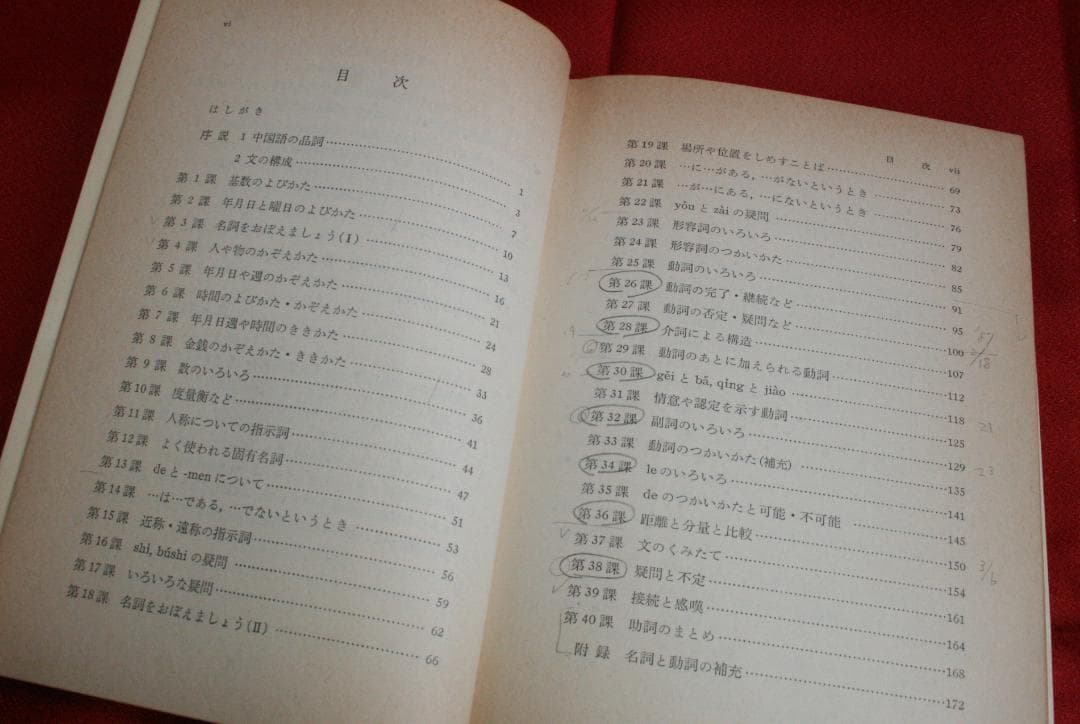 vi
目 次
はしがき
序説 1 中国語の品詞……1
2 文の構成……3
第1課 基数のよびかた……7
第2課 年月日と曜日のよびかた……10
第3課 名詞をおぼえましょう(Ⅰ)……13
第4課 人や物のかぞえかた……16
第5課 年月日や週のかぞえかた……21
第6課 時間のよびかた・かぞえかた……24
第7課 年月日週や時間のききかた……28
第8課 金銭のかぞえかた・ききかた……33
第9課 数のいろいろ……36
第10課 度量衡など……41
第11課 人称についての指示詞……44
第12課 よく使われる固有名詞……47
第13課 deと-menについて……51
第14課 …は…である,…でないというとき……53
第15課 近称・遠称の指示詞……56
第16課 shì, búshiの疑問……59
第17課 いろいろな疑問……62
第18課 名詞をおぼえましょう(Ⅱ)……66
目 次 vii
第19課 場所や位置をしめすことば……69
第20課 …に…がある,…がないというとき……73
第21課 …が…にある,…にないというとき……76
第22課 yǒuとzàiの疑問……79
第23課 形容詞のいろいろ……82
第24課 形容詞のつかいかた……85
第25課 動詞のいろいろ……91
第26課 動詞の完了・継続など……95
第27課 動詞の否定・疑問など……100
第28課 介詞による構造……107
第29課 動詞のあとに加えられる動詞……112
第30課 gěiとbǎ, qǐngとjiào……118
第31課 情意や認定を示す動詞……125
第32課 副詞のいろいろ……129
第33課 動詞のつかいかた(補充)……135
第34課 leのいろいろ……141
第35課 deのつかいかたと可能・不可能……145
第36課 距離と分量と比較……150
第37課 文のくみたて……154
第38課 疑問と不定……161
第39課 接続と感嘆……164
第40課 助詞のまとめ……168
附録 名詞と動詞の補充……172
'87
2/18
21
23
3/6